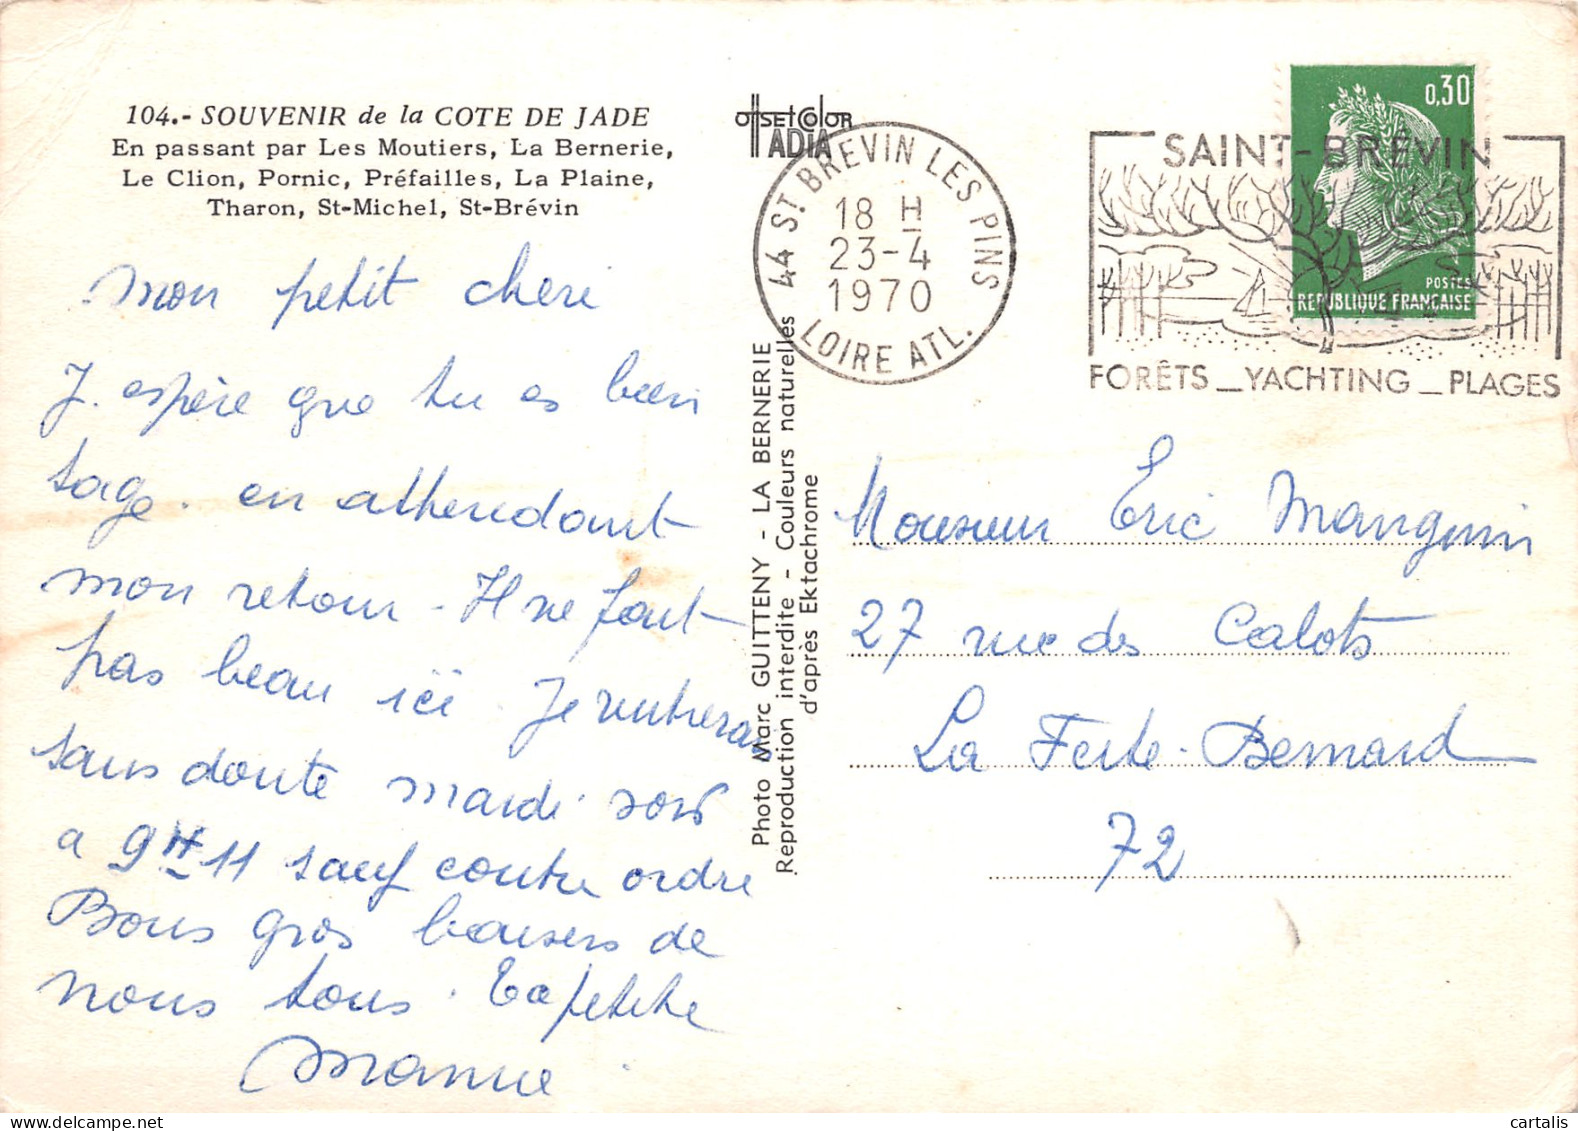 104.- SOUVENIR de la COTE DE JADE
En passant par Les Moutiers, La Bernerie,
Le Clion, Pornic, Préfailles, La Plaine,
Tharon, St-Michel, St-Brévin
mon petit cheri
J. espère que tu es bien
sage. en attendant
mon retour - Il ne fait
pas beau ici. Je rentrerai
sans doute mardi soir
a 9H 11 sauf contre ordre
Bons gros baisers de
nous tous. Ta petite
Mamie
OFFSET COLOR
ADIA
Photo Marc GUITTENY - LA BERNERIE
Reproduction interdite - Couleurs naturelles
d'après Ektachrome
44 ST. BREVIN LES PINS
18 H
23-4
1970
LOIRE ATL.
SAINT-BRÉVIN
FORÊTS _ YACHTING _ PLAGES
0,30
POSTES
REPUBLIQUE FRANÇAISE
Monsieur Eric Manguin
27 rue des Calots
La Ferte-Bernard
72
cartalis